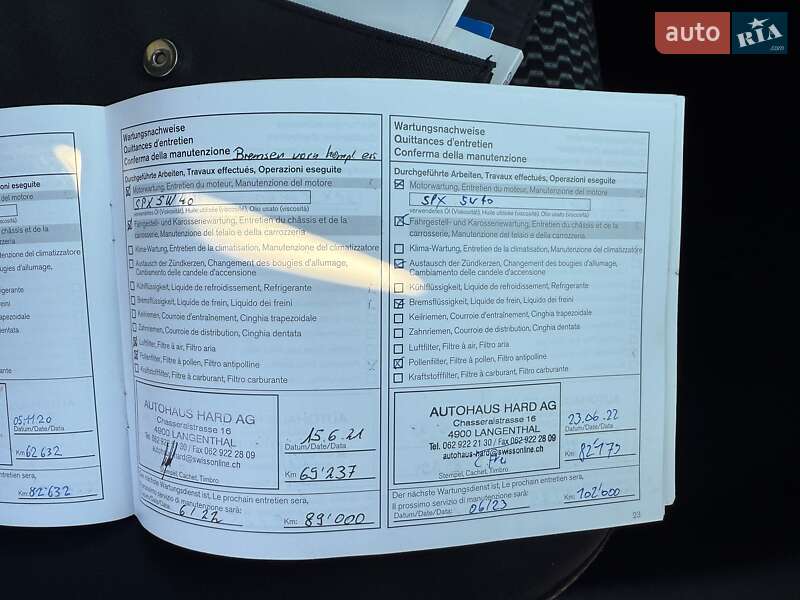 auto RIA.com
oni eseguite
del motore
hâssis et de la
rozzeria
del climatizzatore
d'allumage,
rigerante
freni
trapezoidale
ntata
ante
05.11.20
Datum/Date/Data
Km 62 632
entretien sera,
Km: 82'632
Wartungsnachweise
Quittances d'entretien
Conferma della manutenzione Bremsen vorn kompl ers
Durchgeführte Arbeiten, Travaux effectués, Operazioni eseguite
Motorwartung, Entretien du moteur, Manutenzione del motore
SPX 5W40
verwendetes Öl (Viskosität), Huile utilisée (viscosité), Olio usato (viscosità)
Fahrgestell- und Karosseriewartung, Entretien du châssis et de la
carrosserie, Manutenzione del telaio e della carrozzeria
Klima-Wartung, Entretien de la climatisation, Manutenzione del climatizzatore
Austausch der Zündkerzen, Changement des bougies d'allumage,
Cambiamento delle candele d'accensione
Kühlflüssigkeit, Liquide de refroidissement, Refrigerante
Bremsflüssigkeit, Liquide de frein, Liquido dei freini
Keilriemen, Courroie d'entraînement, Cinghia trapezoidale
Zahnriemen, Courroie de distribution, Cinghia dentata
Luftfilter, Filtre à air, Filtro aria
Pollenfilter, Filtre à pollen, Filtro antipolline
Kraftstofffilter, Filtre à carburant, Filtro carburante
AUTOHAUS HARD AG
Chasseralstrasse 16
4900 LANGENTHAL
Tel. 062 922 21 30 / Fax 062 922 28 09
autohaus-hard@swissonline.ch
Stempel, Cachet, Timbro
15.6.21
Datum/Date/Data
Km 69'237
Der nächste Wartungsdienst ist, Le prochain entretien sera,
Il prossimo servizio di manutenzione sarà:
Datum/Date/Data: 6/22 Km: 89'000
Wartungsnachweise
Quittances d'entretien
Conferma della manutenzione
Durchgeführte Arbeiten, Travaux effectués, Operazioni eseguite
Motorwartung, Entretien du moteur, Manutenzione del motore
SPX 5W40
verwendetes Öl (Viskosität), Huile utilisée (viscosité), Olio usato (viscosità)
Fahrgestell- und Karosseriewartung, Entretien du châssis et de la
carrosserie, Manutenzione del telaio e della carrozzeria
Klima-Wartung, Entretien de la climatisation, Manutenzione del climatizzatore
Austausch der Zündkerzen, Changement des bougies d'allumage,
Cambiamento delle candele d'accensione
Kühlflüssigkeit, Liquide de refroidissement, Refrigerante
Bremsflüssigkeit, Liquide de frein, Liquido dei freini
Keilriemen, Courroie d'entraînement, Cinghia trapezoidale
Zahnriemen, Courroie de distribution, Cinghia dentata
Luftfilter, Filtre à air, Filtro aria
Pollenfilter, Filtre à pollen, Filtro antipolline
Kraftstofffilter, Filtre à carburant, Filtro carburante
AUTOHAUS HARD AG
Chasseralstrasse 16
4900 LANGENTHAL
Tel. 062 922 21 30 / Fax 062 922 28 09
autohaus-hard@swissonline.ch
Stempel, Cachet, Timbro
23.06.22
Datum/Date/Data
Km: 82'173
Der nächste Wartungsdienst ist, Le prochain entretien sera,
Il prossimo servizio di manutenzione sarà:
Datum/Date/Data: 06/23 Km: 102'000
23